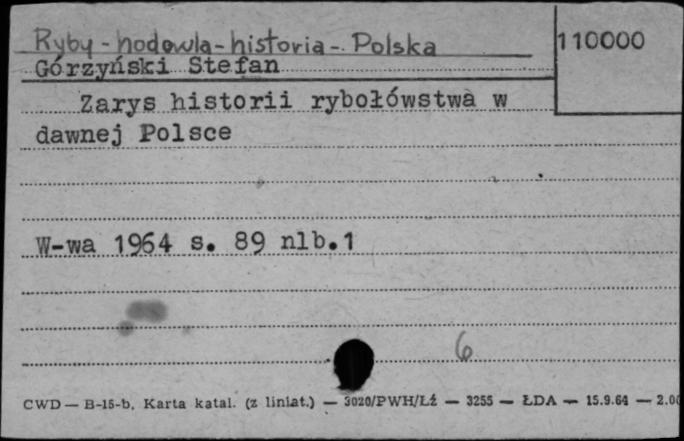 Ryby - hodowla - historia - Polska
110000
Górzyński Stefan
Zarys historii rybołówstwa w
dawnej Polsce
W-wa 1964 s. 89 nlb.1
6
CWD — B-15-b, Karta katal. (z liniat.) — 3020/PWH/Łź — 3255 — ŁDA — 15.9.64 — 2.00